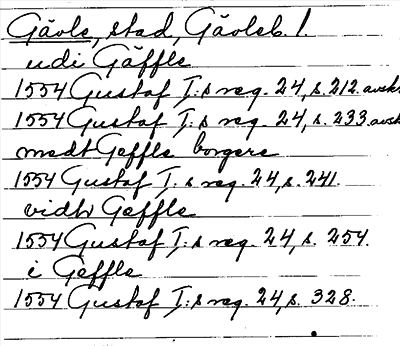 Gävle, stad, Gävleb. l.
udi Gäffle
1554 Gustaf I:s reg. 24, s. 212. avskr
1554 Gustaf I:s reg. 24, s. 233. avsk
medt Geffle borgere
1554 Gustaf I:s reg. 24, s. 241.
vidh Geffle
1554 Gustaf I:s reg. 24, s. 254.
i Geffle
1554 Gustaf I:s reg. 24, s. 328.